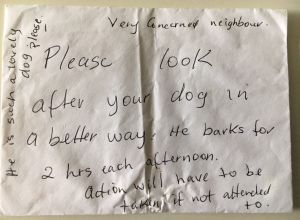 Very Concerned neighbour.
Please look
after your dog in
a better way. He barks for
2 hrs each afternoon.
Action will have to be
taken if not attended
to.
He is such a lovely
dog please!